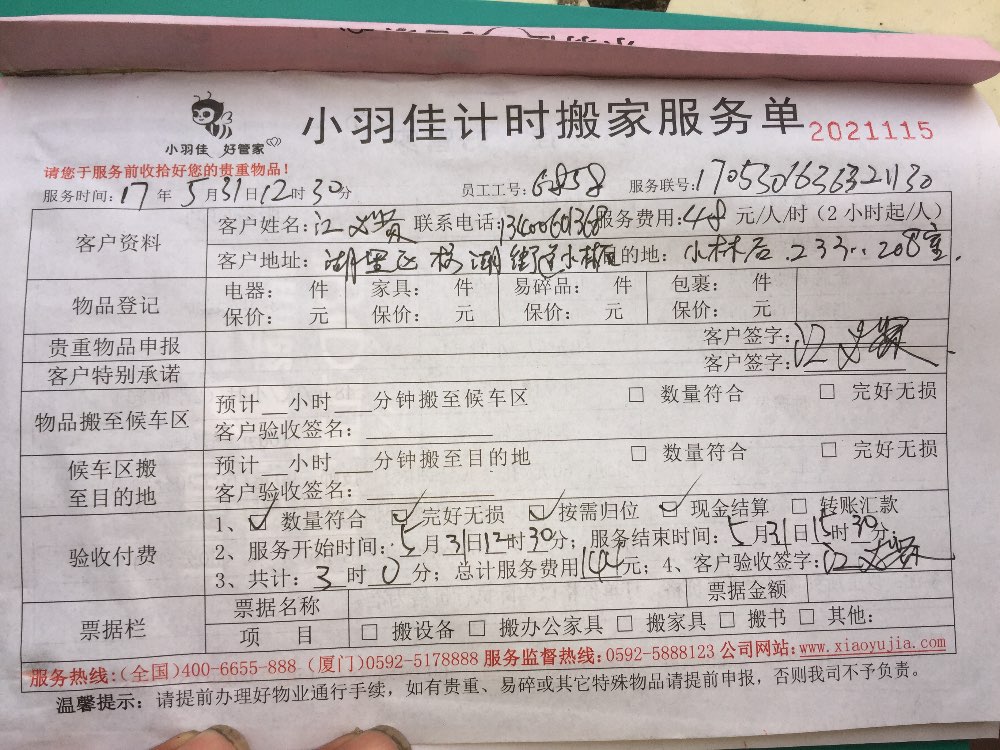 小羽佳 好管家
小羽佳计时搬家服务单 2021115
请您于服务前收拾好您的贵重物品！
服务时间：17年5月31日12时30分 员工工号：6858 服务联号：1705301636321130
客户资料 客户姓名：江 联系电话： 服务费用：48元/人/时（2小时起/人）
客户地址：湖里区 湖街道小 目的地：小林后.233..208室.
物品登记 电器： 件 家具： 件 易碎品： 件 包裹： 件
保价： 元 保价： 元 保价： 元 保价： 元
贵重物品申报 客户签字：江
客户特别承诺 客户签字：
物品搬至候车区 预计__小时___分钟搬至候车区 □ 数量符合 □ 完好无损
客户验收签名：
候车区搬至目的地 预计__小时___分钟搬至目的地 □ 数量符合 □ 完好无损
客户验收签名：
验收付费 1、☑ 数量符合 ☑ 完好无损 ☑ 按需归位 ☑ 现金结算 □ 转账汇款
2、服务开始时间：5月31日12时30分；服务结束时间：5月31日15时30分
3、共计：3时0分；总计服务费用144元；4、客户验收签字：江
票据栏 票据名称 票据金额
项 目 □ 搬设备 □ 搬办公家具 □ 搬家具 □ 搬书 □ 其他：
服务热线：（全国）400-6655-888（厦门）0592-5178888 服务监督热线：0592-5888123 公司网站：www.xiaoyujia.com
温馨提示：请提前办理好物业通行手续，如有贵重、易碎或其它特殊物品请提前申报，否则我司不予负责。